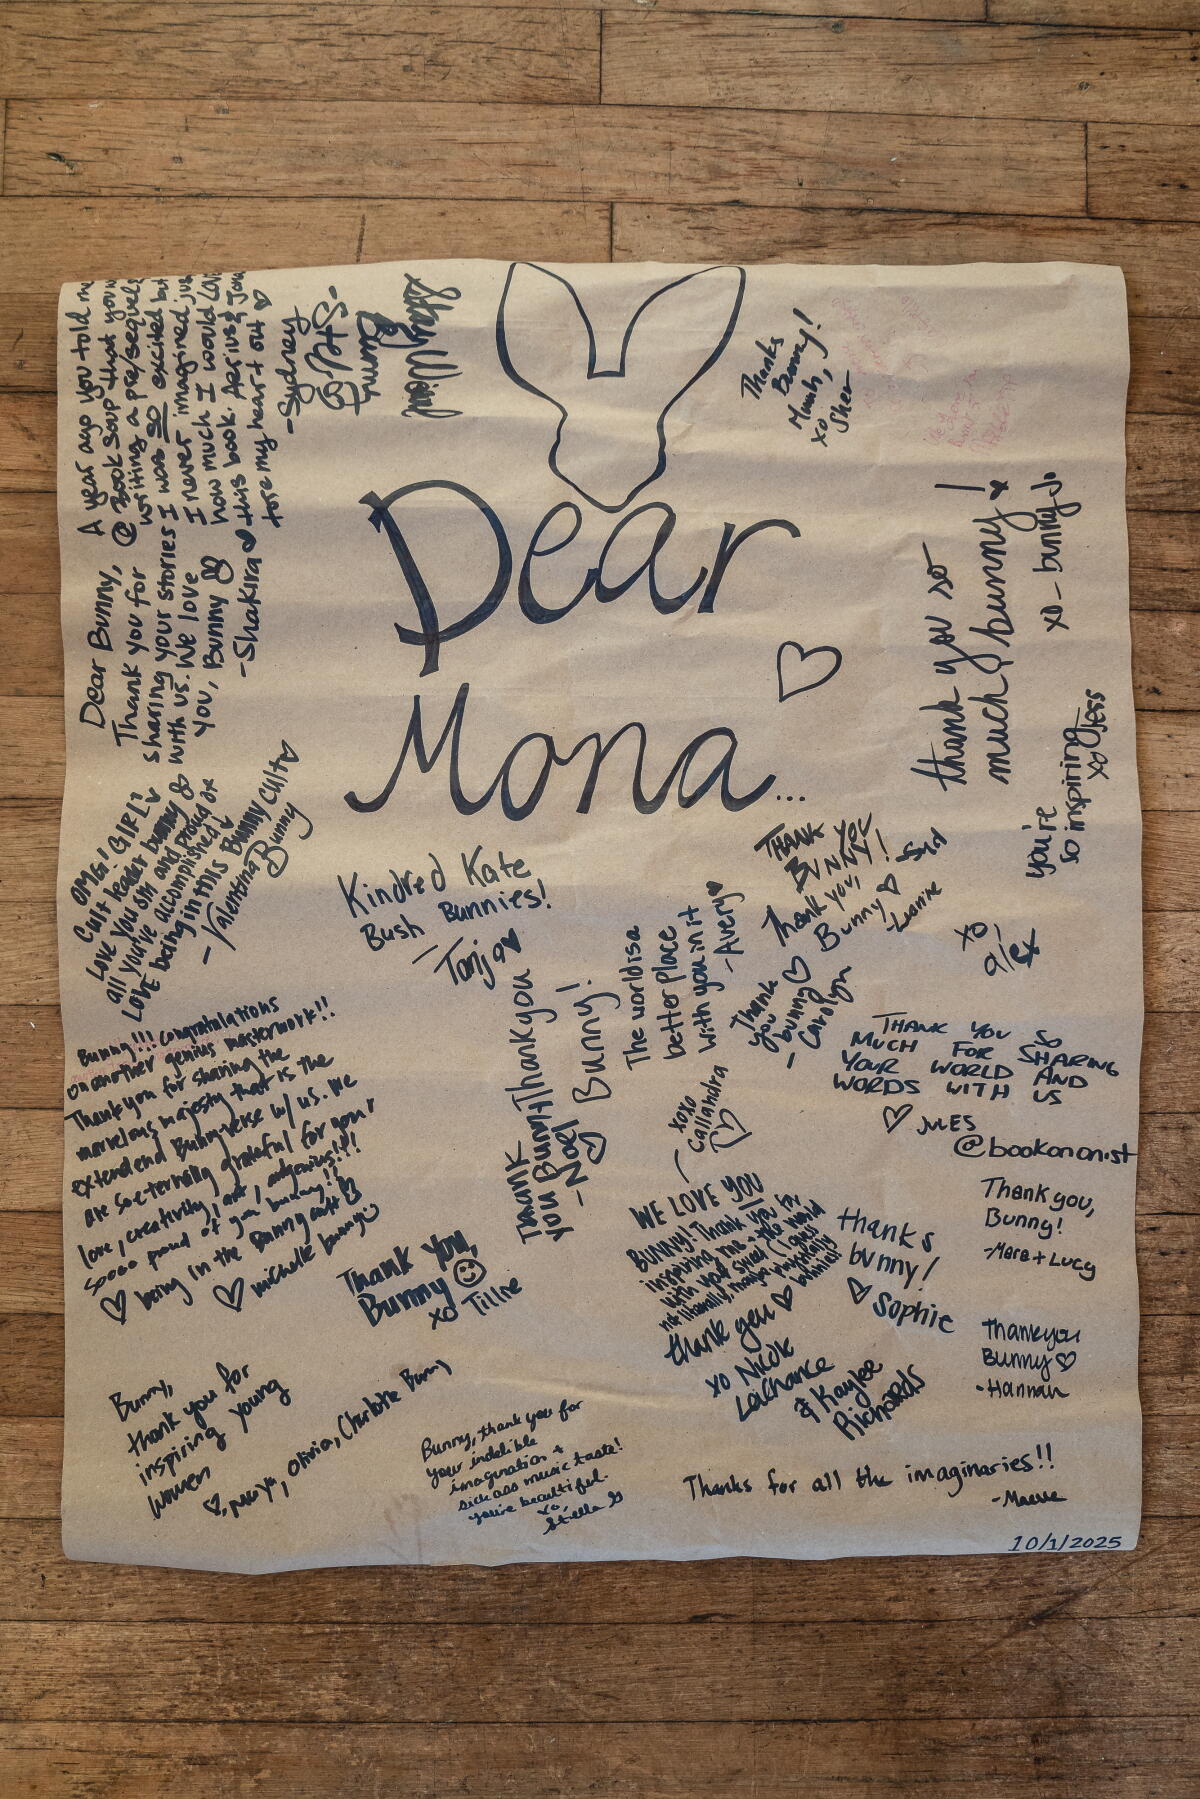 Dear
Mona...
A year ago you told me
@ Book Soup that you were
writing a pre/sequel
I was so excited but
I never imagined just
how much I would LOVE
this book. Aerius &
tore my heart out
-Sydney
Bunny
Thanks
Bunny!
xo
Sher
Dear Bunny,
Thank you for
sharing your stories
with us. We love
you, Bunny
-Shakira
thank you so
much, bunny!
xo - bunny J.
you're
so inspiring
xo Jess
OMG! GIRL!
Cult leader bunny
Love you sm and proud of
all you've accomplished
LOVE being in this Bunny CULT
-Valentina Bunny
Kindred Kate
Bush Bunnies!
-Tanja
THANK
YOU
BUNNY!
Thank you,
Bunny
xo
alex
The world is a
better place
with you in it
-Avery
Thank
you
bunny
-Carolyn
Thank you
Bunny!
Thank
you Bunny
-Noel
Bunny!!! Congratulations
on another genius masterwork!!
Thank you for sharing the
marvelous majesty that is the
extended Bunny-verse w/ us. We
are so eternally grateful for your
love, creativity, art,
soooo proud of you bunny!!
being in the Bunny cult
michelle bunny
THANK YOU SO
MUCH FOR SHARING
YOUR WORLD AND
WORDS WITH US
JULES
@bookononist
xoxo
Callandra
WE LOVE YOU
BUNNY! Thank you for
inspiring me + the world
with your
not literally, maybe
bunnies!
thank you
xo Nicole
LaChance
& Kaylee
Richards
thanks
bunny!
Sophie
Thank you,
Bunny!
-Mara + Lucy
Thank you,
Bunny
xo Tillie
Thank you
Bunny
-Hannah
Bunny,
thank you for
inspiring young
women
Maya, Olivia, Charlotte Bunny
Bunny, thank you for
your indelible
imagination +
sick ass music taste!
you're beautiful.
xo,
Stella G
Thanks for all the imaginaries!!
-Maeve
10/1/2025